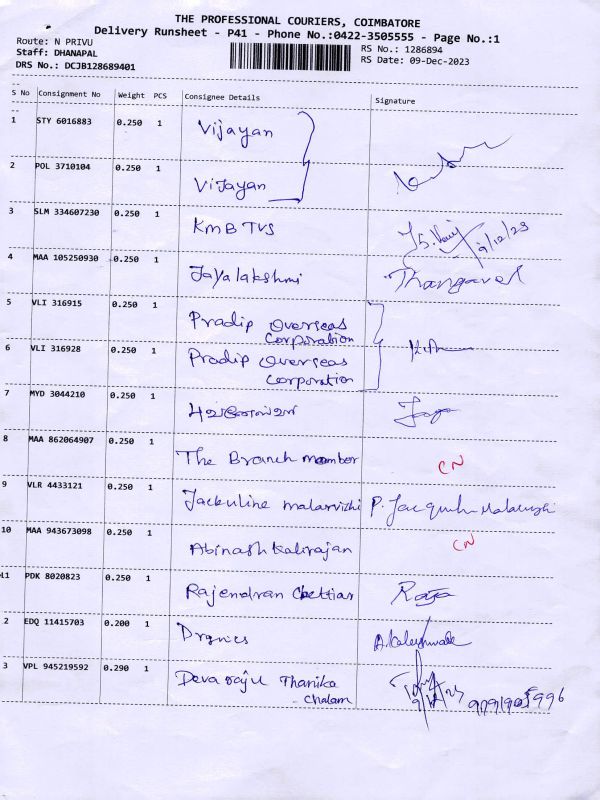 THE PROFESSIONAL COURIERS, COIMBATORE
Delivery Runsheet - P41 - Phone No.:0422-3505555 - Page No.:1
Route: N PRIVU
RS No.: 1286894
Staff: DHANAPAL
RS Date: 09-Dec-2023
DRS No.: DCJB128689401
S No Consignment No Weight PCS Consignee Details Signature
1 STY 6016883 0.250 1 Vijayan
2 POL 3710104 0.250 1 Vijayan
3 SLM 334607230 0.250 1 KMB TVS 9/12/23
4 MAA 105250930 0.250 1 Jayalakshmi Thangavel
5 VLI 316915 0.250 1 Pradip Overseas
Corporation
6 VLI 316928 0.250 1 Pradip Overseas
Corporation
7 MYD 3044210 0.250 1
8 MAA 862064907 0.250 1 The Branch member CN
9 VLR 4433121 0.250 1 Jackuline malarvizhi P.
10 MAA 943673098 0.250 1 Abinash Kalirajan CN
11 PDK 8020823 0.250 1 Rajendran Chettiar Raja
2 EDQ 11415703 0.200 1 Drgnics
3 VPL 945219592 0.290 1 Devaraju Thanika
Chalam